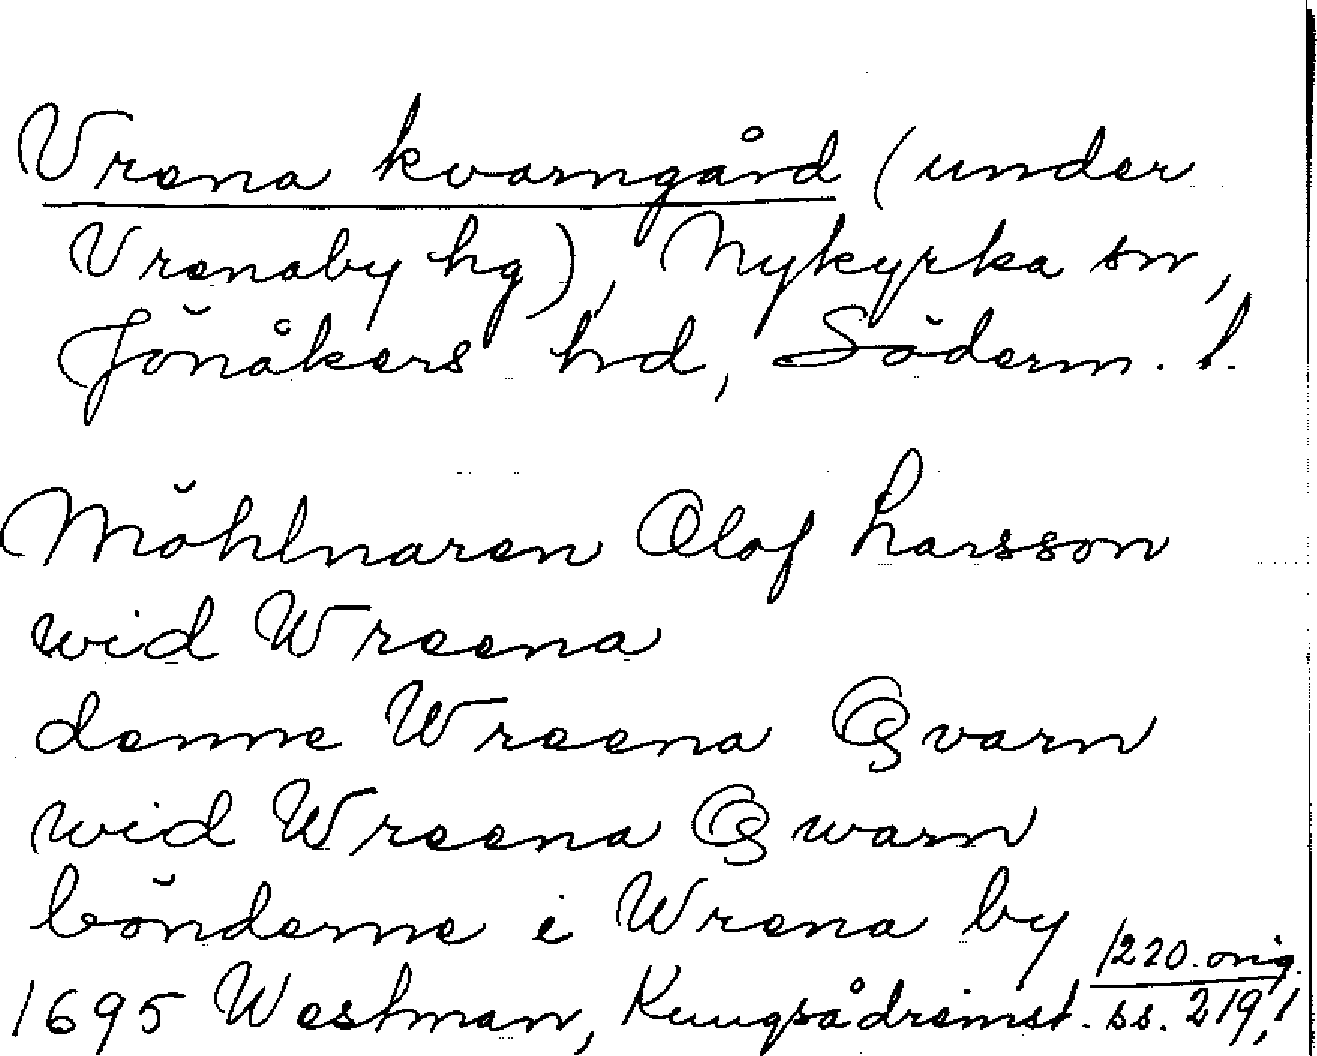 Vrena kvarngård (under
Vrenaby hg), Nykyrka sn,
Jönåkers hd, Söderm. l.
Möhlnaren Olof Larsson
wid Wreena
denne Wreena Qvarn
wid Wreena Qwarn
bönderne i Wrena by
1695 Westman, Kungsådreinst. ss. 219,
220. orig.